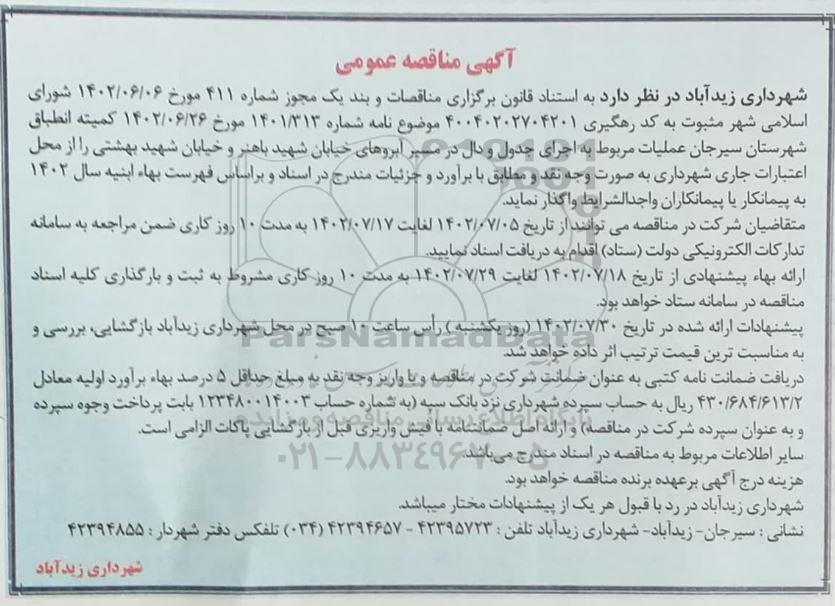 آگهی مناقصه عمومی
شهرداری زیدآباد در نظر دارد به استناد قانون برگزاری مناقصات و بند یک مجوز شماره ۴۱۱ مورخ ۱۴۰۲/۰۶/۰۶ شورای
اسلامی شهر مثبوت به کد رهگیری ۴۰۰۴۰۲۰۲۷۰۴۲۰۱ موضوع نامه شماره ۱۴۰۱/۳۱۳ مورخ ۱۴۰۲/۰۶/۲۶ کمیته انطباق
شهرستان سیرجان عملیات مربوط به اجرای جدول و دال در مسیر آبروهای خیابان شهید باهنر و خیابان شهید بهشتی را از محل
اعتبارات جاری شهرداری به صورت وجه نقد و مطابق با برآورد و جزئیات مندرج در اسناد و براساس فهرست بهاء ابنیه سال ۱۴۰۲
به پیمانکار یا پیمانکاران واجدالشرایط واگذار نماید.
متقاضیان شرکت در مناقصه می توانند از تاریخ ۱۴۰۲/۰۷/۰۵ لغایت ۱۴۰۲/۰۷/۱۷ به مدت ۱۰ روز کاری ضمن مراجعه به سامانه
تدارکات الکترونیکی دولت (ستاد) اقدام به دریافت اسناد نمایید.
ارائه بهاء پیشنهادی از تاریخ ۱۴۰۲/۰۷/۱۸ لغایت ۱۴۰۲/۰۷/۲۹ به مدت ۱۰ روز کاری مشروط به ثبت و بارگذاری کلیه اسناد
مناقصه در سامانه ستاد خواهد بود.
پیشنهادات ارائه شده در تاریخ ۱۴۰۲/۰۷/۳۰ (روز یکشنبه) رأس ساعت ۱۰ صبح در محل شهرداری زیدآباد بازگشایی، بررسی و
به مناسبت ترین قیمت ترتیب اثر داده خواهد شد.
دریافت ضمانت نامه کتبی به عنوان ضمانت شرکت در مناقصه و یا واریز وجه نقد به مبلغ حداقل ۵ درصد بهاء برآورد اولیه معادل
۴۳۰/۶۸۴/۶۱۳/۲ ریال به حساب سپرده شهرداری نزد بانک سپه (به شماره حساب ۱۲۳۴۸۰۰۱۴۰۰۳ بابت پرداخت وجوه سپرده
و به عنوان سپرده شرکت در مناقصه) و ارائه اصل ضمانتنامه یا فیش واریزی قبل از بازگشایی پاکات الزامی است.
سایر اطلاعات مربوط به مناقصه در اسناد مندرج می‌باشد.
هزینه درج آگهی برعهده برنده مناقصه خواهد بود.
شهرداری زیدآباد در رد یا قبول هر یک از پیشنهادات مختار میباشد.
نشانی : سیرجان- زیدآباد- شهرداری زیدآباد تلفن : ۴۲۳۹۵۷۲۳ - ۴۲۳۹۴۶۵۷ (۰۳۴) تلفکس دفتر شهردار : ۴۲۳۹۴۸۵۵
شهرداری زیدآباد
ParsNamadData
۰۲۱-۸۸۳۴۹۶۷۰-۵